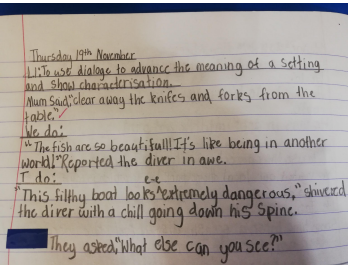 Thursday 19th November
LI: To use dialoge to advance the meaning of a setting
and show characterisation.
Mum said, "clear away the knifes and forks from the
table." ✓
We do:
"The fish are so beautifull! It's like being in another
world!" Reported the diver in awe.
I do:
"This filthy boat looks extremely dangerous," shivered
the diver with a chill going down his spine.
They asked, "What else can you see?"